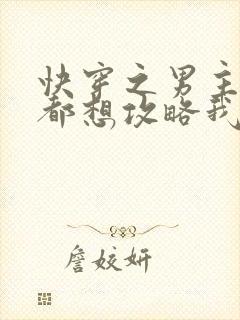 快穿之男主
都想攻略我
詹姣妍